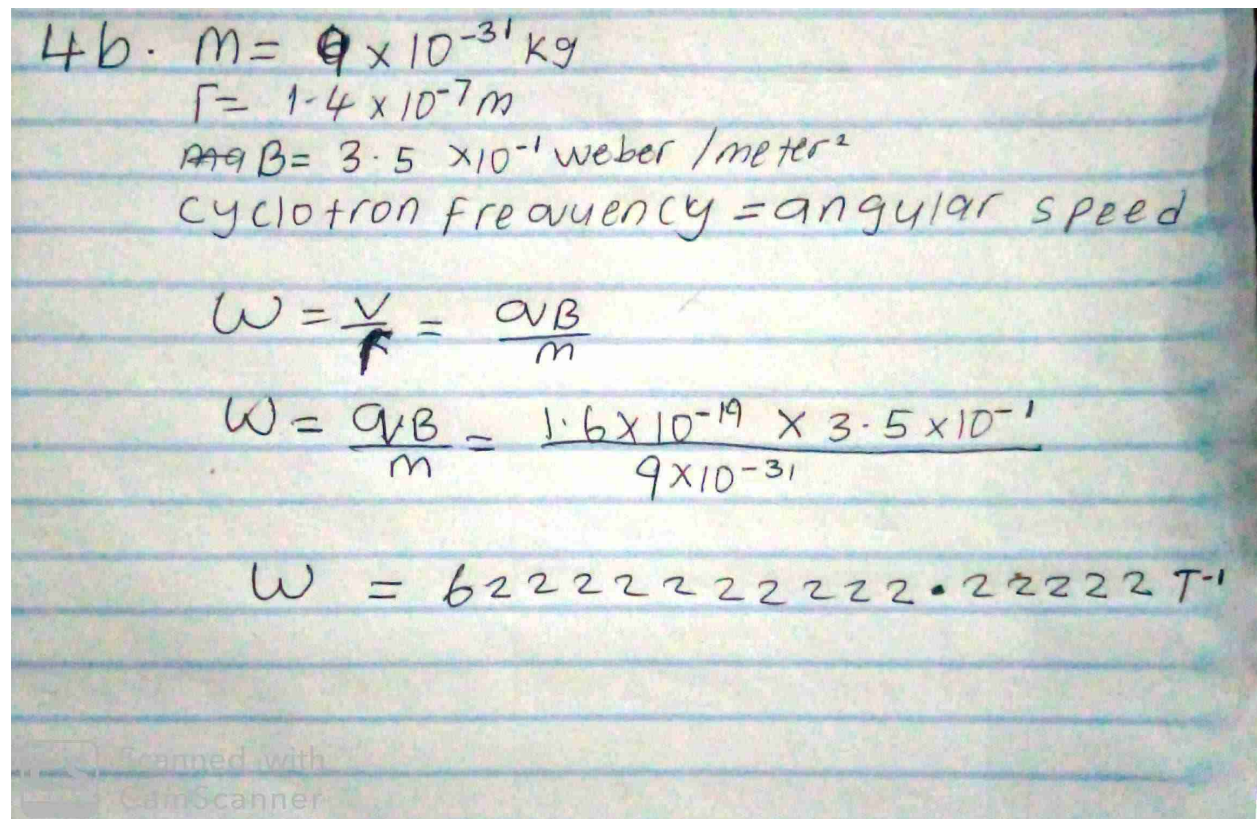 4b. m = 9 x 10-31 kg
r = 1.4 x 10-7 m
B = 3.5 x10-1 weber / meter2
cyclotron freqquency = angular speed
W = V/r = qB/m
W = qB/m = 1.6 X 10-19 X 3.5 x 10-1 / 9X10-31
W = 62222222222.22222 T-1
Scanned with
CamScanner